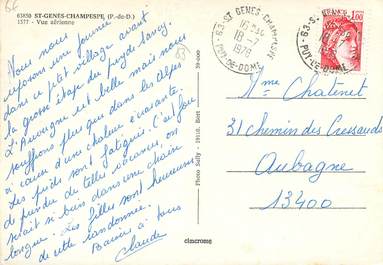 63850 ST-GENÈS-CHAMPESPE (P.-de-D.)
1577 - Vue aérienne
Nous nous
reposons une journée
dans ce petit village avant
la grosse étape du puy de Sancy.
L'Auvergne est belle mais nous
souffrons plus que dans les Alpes
à cause d'une chaleur écrasante.
Les pieds sont fatigués. C'est fou
de perdre de telles vacances, on
serait si bien dans une chaise
longue. Les filles sont heureuses
de cette randonnée.
Baisers à tous
Claude
Photo Sully - 19110. Bort
39-000
cimcrome
63-ST GENES CHAMPESPE
16 H
18-7
1978
PUY-DE-DOME
1,00
Mme Chatenet
31 Chemin des Cressauds
Aubagne
13400